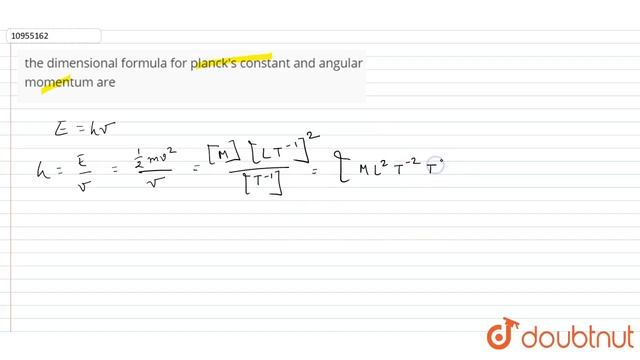 10955162
the dimensional formula for planck's constant and angular
momentum are
E = hν
h = E/ν = ½mv²/ν = [M] [LT⁻¹]²/[T⁻¹] = [ M L² T⁻² T
doubtnut